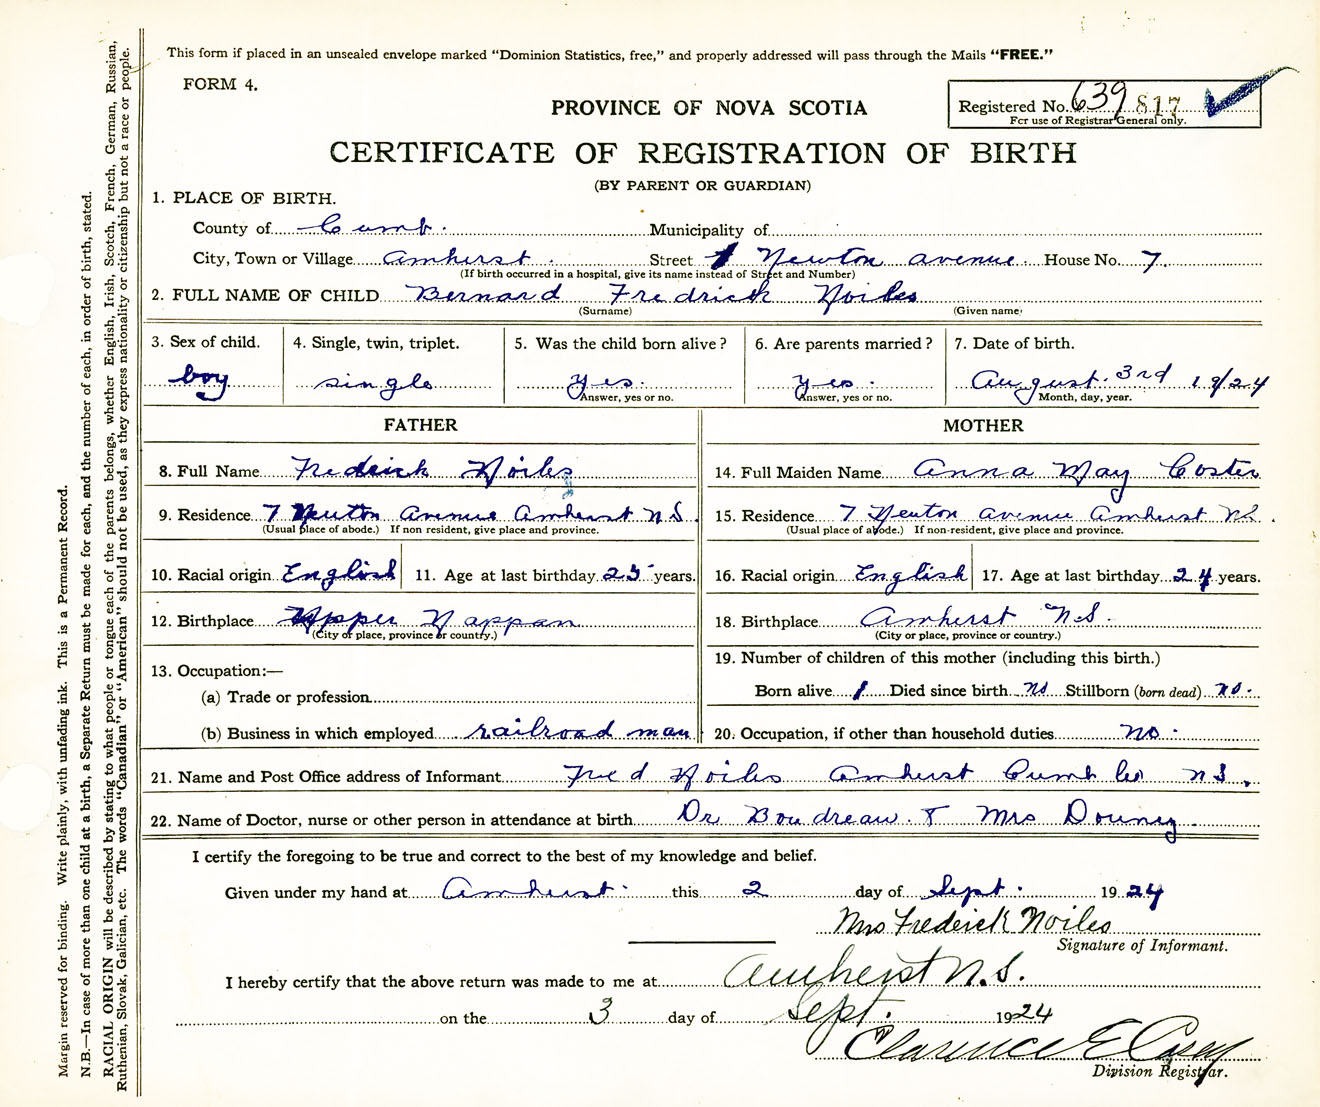 This form if placed in an unsealed envelope marked “Dominion Statistics, free,” and properly addressed will pass through the Mails “FREE.”
FORM 4.
PROVINCE OF NOVA SCOTIA
Registered No. 639 817
For use of Registrar General only.
CERTIFICATE OF REGISTRATION OF BIRTH
(BY PARENT OR GUARDIAN)
1. PLACE OF BIRTH.
County of Cumb. Municipality of
City, Town or Village Amherst. Street Newton avenue. House No. 7.
(If birth occurred in a hospital, give its name instead of Street and Number)
2. FULL NAME OF CHILD Bernard Fredrick Noiles
(Surname) (Given name)
3. Sex of child. 4. Single, twin, triplet. 5. Was the child born alive? 6. Are parents married? 7. Date of birth.
boy single yes. yes. August. 3rd 1924
Answer, yes or no. Answer, yes or no. Month, day, year.
FATHER MOTHER
8. Full Name Fredrick Noiles 14. Full Maiden Name Anna May Coster
9. Residence 7 Newton Avenue Amherst N.S. 15. Residence 7 Newton avenue Amherst NS.
(Usual place of abode.) If non resident, give place and province. (Usual place of abode.) If non-resident, give place and province.
10. Racial origin English 11. Age at last birthday 25 years. 16. Racial origin English 17. Age at last birthday 24 years.
12. Birthplace Upper Nappan 18. Birthplace Amherst N.S.
(City or place, province or country.) (City or place, province or country.)
13. Occupation:— 19. Number of children of this mother (including this birth.)
(a) Trade or profession Born alive 1 Died since birth no Stillborn (born dead) no.
(b) Business in which employed railroad man 20. Occupation, if other than household duties no.
21. Name and Post Office address of Informant Fred Noiles Amherst Cumb Co N.S.
22. Name of Doctor, nurse or other person in attendance at birth Dr Boudreau. & Mrs Downey.
I certify the foregoing to be true and correct to the best of my knowledge and belief.
Given under my hand at Amherst. this 2 day of Sept. 1924
Mrs Frederick Noiles
Signature of Informant.
I hereby certify that the above return was made to me at Amherst N.S.
on the 3 day of Sept. 1924
Clarence E Casey
Division Registrar.
Margin reserved for binding. Write plainly, with unfading ink. This is a Permanent Record.
N.B.—In case of more than one child at a birth, a Separate Return must be made for each, and the number of each, in order of birth, stated.
RACIAL ORIGIN will be described by stating to what people or tongue each of the parents belongs, whether English, Irish, Scotch, French, German, Russian,
Ruthenian, Slovak, Galician, etc. The words “Canadian” or “American” should not be used, as they express nationality or citizenship but not a race or people.